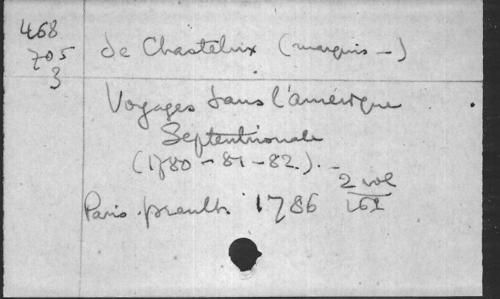 468
705
3
de Chastelux (marquis –)
Voyages dans l'amérique
Septentrionale
(1780 – 81 – 82). –
Paris. prault 1786 2 vol